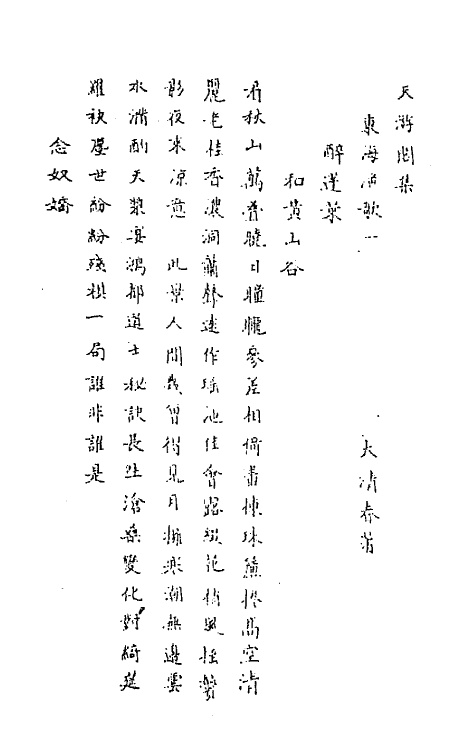 天游閣集
東海漁歌一
太清春著
醉蓬萊
和黃山谷
看秋山萬疊曉日曈曨參差相倚畫棟珠簾捲高空清
麗老桂香濃洞簫聲遠作瑤池佳會露綴花梢風搖鬢
影夜來涼意　此景人間幾曾得見月擁寒潮無邊雲
水滿酌天漿宴鴻都道士秘訣長生滄桑變化對綺筵
羅袂塵世紛紛殘棋一局誰非誰是
念奴嬌